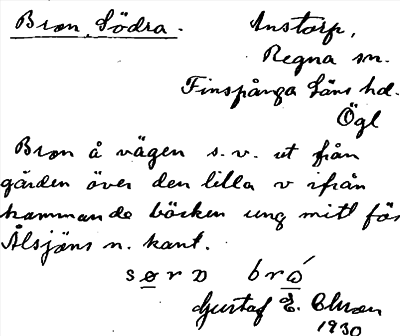 Bron, Södra.
Anstorp,
Regna sn.
Finspånga Läns hd.
Ögl
Bron å vägen s.v. ut från
gården över den lilla v ifrån
kommande bäcken ung mitt för
Ålsjöns n. kant.
Gustaf E.
1930